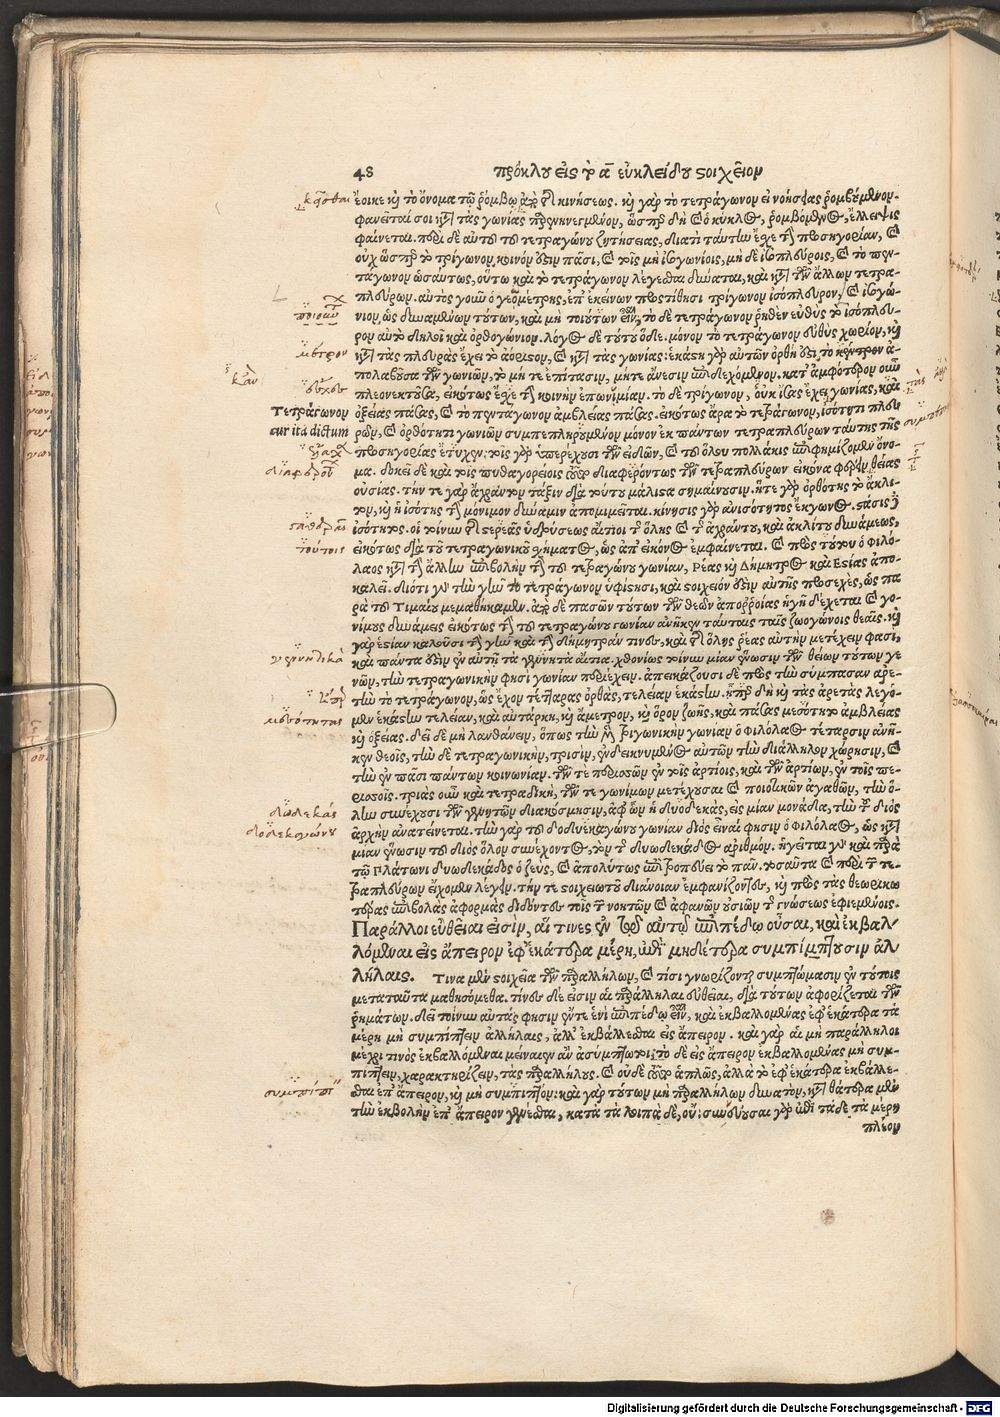 48 πρόκλου εἰς τὸ α εὐκλείδου στοιχεῖον
ἔοικε καὶ τὸ ὄνομα τῷ ῥόμβῳ ἀπὸ τῆς κινήσεως. καὶ γὰρ τὸ τετράγωνον εἰ νοήσῃς ῥομβούμενον,
φανεῖταί σοι κατὰ τὰς γωνίας παρηνηνεγμένον, ὥσπερ δὴ καὶ ὁ κύκλος, ῥομβόμενος, ἔλλειψις
φαίνεται. περὶ δὲ αὐτοῦ τοῦ τετραγώνου ζητήσειας, διατί ταύτην ἔχει τὴν προσηγορίαν, καὶ
οὐχ ὥσπερ τὸ τρίγωνον κοινόν ἐστι πᾶσι, καὶ τοῖς μὴ ἰσογωνίοις, μὴ δὲ ἰσοπλεύροις, καὶ τὸ πεν-
τάγωνον ὡσαύτως, οὕτω καὶ τὸ τετράγωνον λέγεσθαι δύναται, καὶ κατὰ τῶν ἄλλων τετρα-
πλεύρων. αὐτὸς γοῦν ὁ γεωμέτρης, ἐπ' ἐκείνων προστίθησι τρίγωνον ἰσόπλευρον, καὶ ἰσογώ-
νιον, ὡς δυναμένων τούτων, καὶ μὴ τοιούτων εἶναι, τὸ δὲ τετράγωνον ῥηθὲν εὐθὺς τὸ ἰσόπλευ-
ρον αὐτὸ δηλοῖ καὶ ὀρθογώνιον. λόγος δὲ τούτου ὅδε. μόνον τὸ τετράγωνον εὐθὺς χωρίον, καὶ
κατὰ τὰς πλευρὰς ἔχει τὸ ἀόριστον, καὶ κατὰ τὰς γωνίας: ἑκάστη γὰρ αὐτῶν ὀρθή ἐστι, τὸ κέντρον ἀ-
πολαβοῦσα τῶν γωνιῶν, τὸ μή τε ἐπίτασιν, μήτε ἄνεσιν ἐπιδεχόμενον. κατ' ἀμφότερον οὖν
πλεονεκτοῦσα, εἰκότως ἔσχε τὴν κοινὴν ἐπωνυμίαν. τὸ δὲ τρίγωνον, οὐκ ἴσας ἔχει γωνίας, καὶ
Τετράγωνον cur ita dictum
ὀξείας πάσας, καὶ τὸ πεντάγωνον ἀμβλείας πάσας. εἰκότως ἄρα τὸ τετράγωνον, ἰσότητι πλευ
ρῶν, καὶ ὀρθότητι γωνιῶν συμπεπληρωμένον μόνον ἐκ πάντων τετραπλεύρων ταύτης τῆς
προσηγορίας ἔτυχεν: τοῖς γὰρ ὑπερέχουσι τῶν εἰδῶν, καὶ τὸ ὅλου πολλάκις ἐπιφημίζομεν ὄνο-
μα. δοκεῖ δὲ καὶ τοῖς πυθαγορείοις τοῦτο διαφερόντως τῶν τετραπλεύρων εἰκόνα φέρειν θείας
οὐσίας. τήν τε γὰρ ἄχραντον τάξιν διὰ τούτου μάλιστα σημαίνουσιν. ἥτε γὰρ ὀρθότης τὸ ἄκλι-
τον, καὶ ἡ ἰσότης τὴν μόνιμον δύναμιν ἀπομιμεῖται. κίνησις γὰρ ἀνισότητος ἔκγονος. στάσις δὲ
ἰσότητος. οἱ τοίνυν τῆς στερεᾶς ἱδρύσεως αἴτιοι τοῖς ὅλοις καὶ τῆς ἀχράντου, καὶ ἀκλίτου δυνάμεως,
εἰκότως διὰ τοῦ τετραγωνικοῦ σχήματος, ὡς ἀπ' εἰκόνος ἐμφαίνεται. καὶ πρὸς τούτου ὁ φιλό-
λαος κατ' ἄλλην ἐπιβολὴν τὴν τοῦ τετραγώνου γωνίαν, Ρέας καὶ Δήμητρος καὶ Εστίας ἀπο-
καλεῖ. διότι γὰρ τὴν γῆν τὸ τετράγωνον ὑφίστησι, καὶ στοιχεῖόν ἐστιν αὐτῆς προσεχές, ὡς πα
ρὰ τοῦ Τιμαίου μεμαθήκαμεν. ἀπὸ δὲ πασῶν τούτων τῶν θεῶν ἀπορροίας ἡ γῆ δέχεται καὶ γο-
νίμους δυνάμεις εἰκότως τὴν τοῦ τετραγώνου γωνίαν ἀνῆκεν ταύταις ταῖς ζωογόνοις θεαῖς. καὶ
γὰρ ἑστίαν καλοῦσι τὴν γῆν καὶ τὴν δήμητράν τινες, καὶ τῆς ὅλης ῥέας αὐτὴν μετέχειν φασί,
καὶ πάντα ἐστὶν ἐν αὐτῇ τὰ γεννητὰ αἴτια. χθονίως τοίνυν μίαν ἕνωσιν τῶν θείων τούτων γε
νῶν, τὴν τετραγωνικήν φησι γωνίαν περιέχειν. ἀπεικάζουσι δὲ πρὸς τὴν σύμπασαν ἀρε-
τὴν τὸ τετράγωνον, ὡς ἔχον τέτταρας ὀρθὰς, τελείαν ἑκάστην. ᾗπερ δὴ καὶ τὰς ἀρετὰς λεγό-
μεν ἑκάστην τελείαν, καὶ αὐτάρκη, καὶ ἄμετρον, καὶ ὅρον ζωῆς, καὶ πάσας μεσότητα ἀμβλείας
καὶ ὀξείας. δεῖ δὲ μὴ λανθάνειν, ὅπως τὴν μὲν τριγωνικὴν γωνίαν ὁ φιλόλαος τέταρσιν ἀνῆ-
κεν θεοῖς, τὴν δὲ τετραγωνικὴν, τρισὶν, ἐνδεικνύμενος αὐτῶν τὴν διάλληλον χώρησιν, καὶ
τὴν ἐν πᾶσι πάντων κοινωνίαν. τῶν τε περισσῶν ἐν τοῖς ἀρτίοις, καὶ τῶν ἀρτίων, ἐν τοῖς πε-
ρισσοῖς. τριὰς οὖν καὶ τετραδικὴ, τῶν τε γονίμων μετέχουσα καὶ ποιητικῶν ἀγαθῶν, τὴν ὅ-
λην συνέχουσι τῶν γεννητῶν διακόσμησιν, ἀφ' ὧν ἡ δυοδεκὰς, εἰς μίαν μονάδα, τὴν τοῦ διὸς
ἀρχὴν ἀνατείνεται. τὴν γὰρ τοῦ δυοδεκαγώνου γωνίαν διὸς εἶναί φησιν ὁ φιλόλαος, ὡς κατὰ
μίαν ἕνωσιν τοῦ διὸς ὅλον συνέχοντος, τὸν τῆς δυωδεκάδος ἀριθμόν. ἡγεῖται γὰρ καὶ παρὰ
τῷ Πλάτωνι δυωδεκάδος ὁ ζεὺς, καὶ ἀπολύτως ἐπιτροπεύει τὸ πᾶν. τοσαῦτα καὶ περὶ τῶν τε-
τραπλεύρων εἴχομεν λέγειν. τήν τε στοιχειωτοῦ διάνοιαν ἐμφανίζοντες, καὶ πρὸς τὰς θεωρικω
τέρας ἐπιβολὰς ἀφορμὰς διδόντες τοῖς τῶν νοητῶν καὶ ἀφανῶν οὐσιῶν τῆς γνώσεως ἐφιεμένοις.
Παράλλοι εὐθεῖαι εἰσὶν, αἵ τινες ἐν τῷ αὐτῷ ἐπιπέδῳ οὖσαι, καὶ ἐκβαλ-
λόμεναι εἰς ἄπειρον ἐφ' ἑκάτερα μέρη, ἐπὶ μηδέτερα συμπίμπτουσιν ἀλ
λήλαις. Τινα μὲν στοιχεῖα τῶν παραλλήλων, καὶ τίσι γνωρίζονται συμπτώμασιν ἐν τούτοις
μεταταῦτα μαθησόμεθα. τίνες δέ εἰσιν αἱ παράλληλαι εὐθεῖαι, διὰ τούτων ἀφορίζεται τῶν
ῥημάτων. δεῖ τοίνυν αὐτάς φησιν ἔν τε ἑνὶ ἐπιπέδῳ εἶναι, καὶ ἐκβαλλομένας ἐφ' ἑκάτερα τὰ
μέρη μὴ συμπίπτειν ἀλλήλαις, ἀλλ' ἐκβάλλεσθαι εἰς ἄπειρον. καὶ γὰρ αἱ μὴ παράλληλοι
μέχρι τινὸς ἐκβαλλόμεναι μείναιεν ἂν ἀσύμπτωτοι: τὸ δὲ εἰς ἄπειρον ἐκβαλλομένας μὴ συμ-
πίπτειν, χαρακτηρίζειν, τὰς παραλλήλους. καὶ οὐδὲ τοῦτο ἁπλῶς, ἀλλὰ τὸ ἐφ' ἑκάτερα ἐκβάλλε-
σθαι ἐπ' ἄπειρον, καὶ μὴ συμπίπτον: καὶ γὰρ τούτων μὴ παραλλήλων δυνατὸν, κατὰ θάτερα μὲν
τὴν ἐκβολὴν ἐπ' ἄπειρον γενέσθαι, κατὰ τὰ λοιπὰ δὲ, οὔ: συνεύουσαι γὰρ ἐπὶ τάδε τὰ μέρη
πλέον
μέτρον
διαφέρον
τούτοις
μεσότητας
δωδεκάς
δοδεκαγώνου
Digitalisierung gefördert durch die Deutsche Forschungsgemeinschaft - DFG